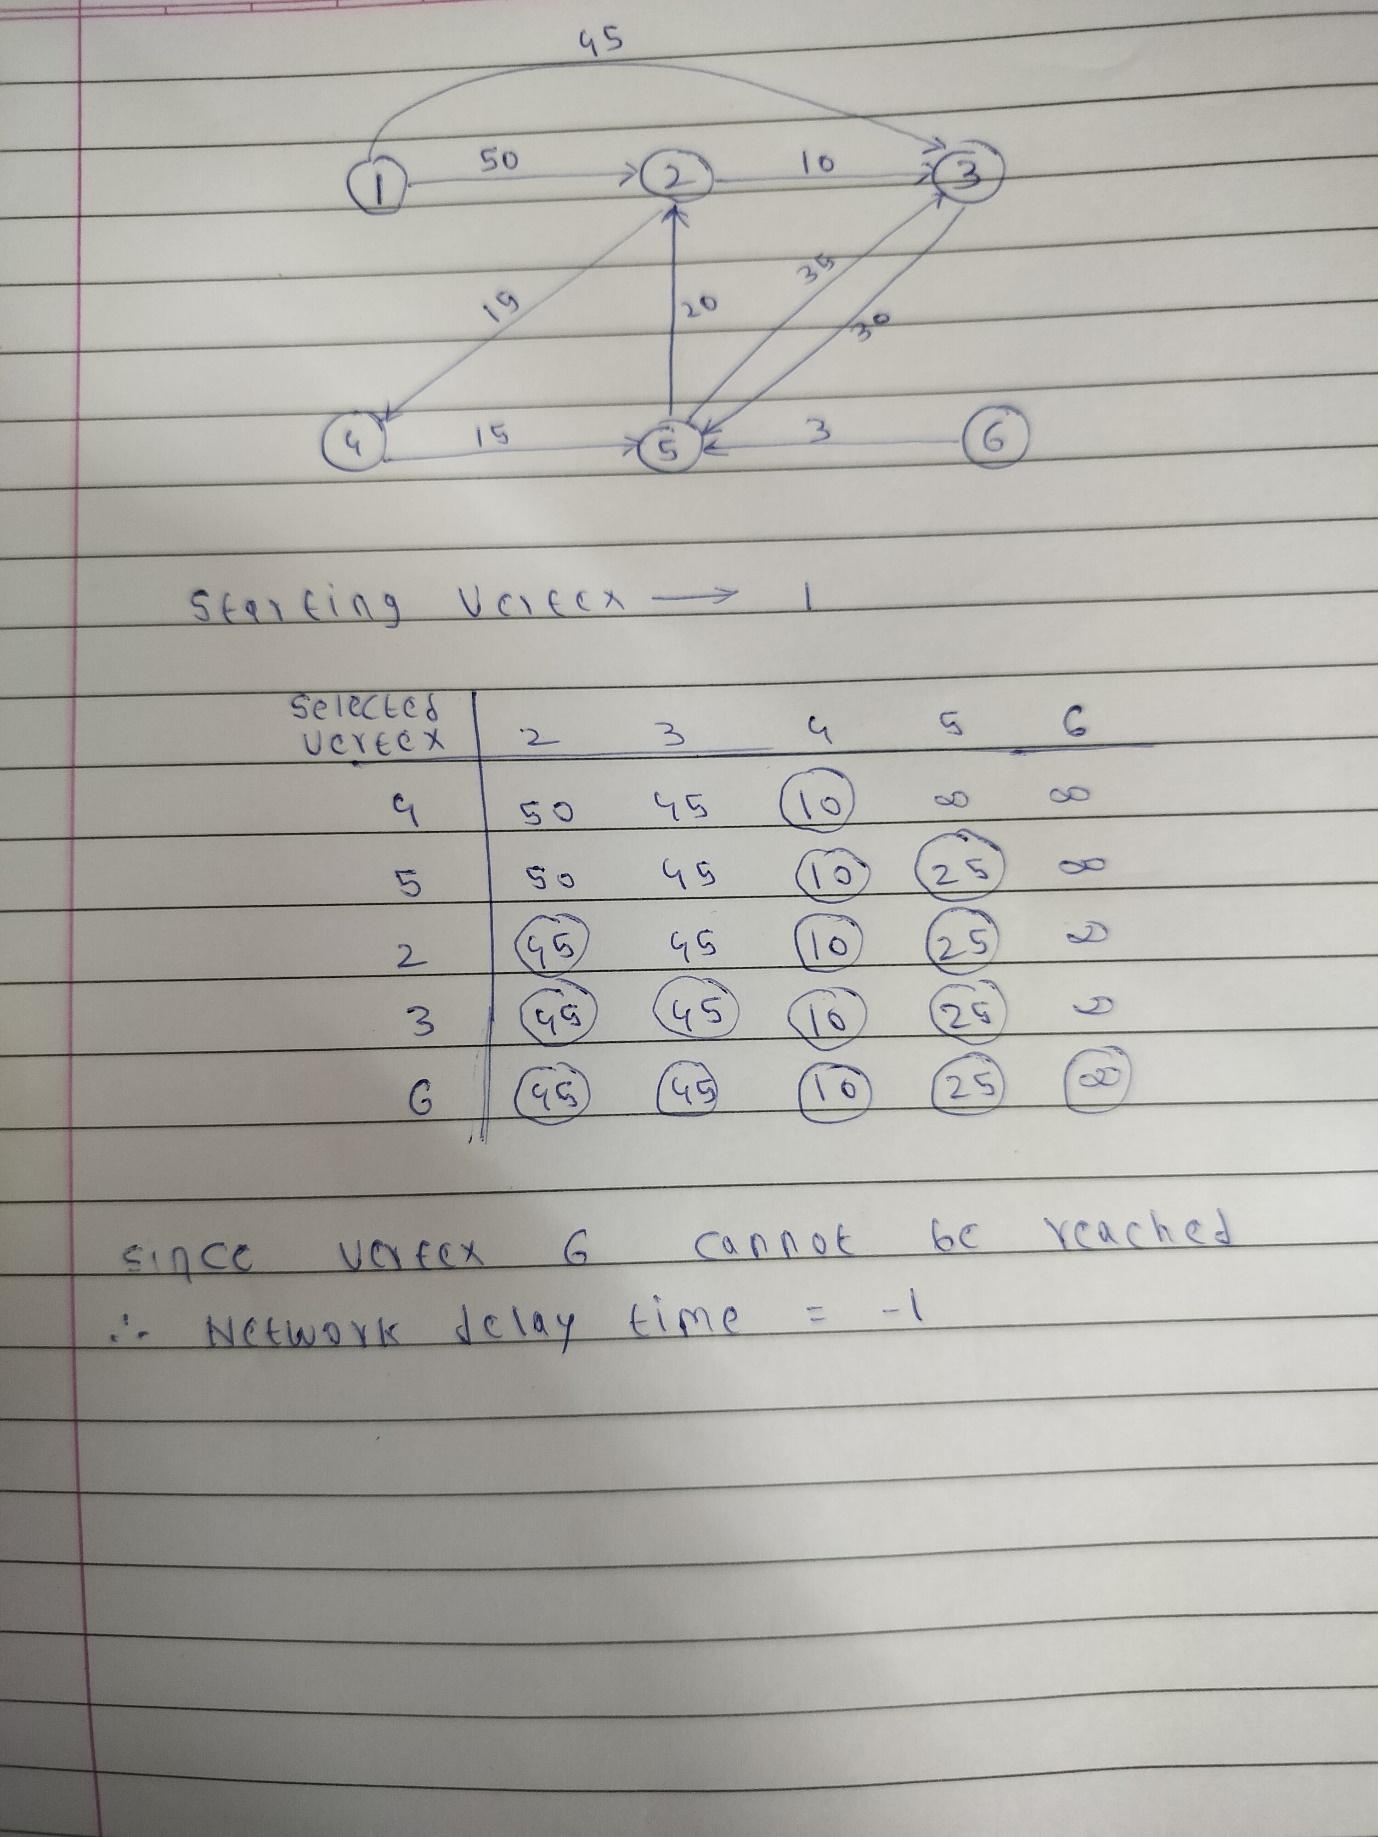 45
1 50 2 10 3
15 20 35 30
4 15 5 3 6
Starting Vertex → 1
Selected
vertex 2 3 4 5 6
4 50 45 10 ∞ ∞
5 50 45 10 25 ∞
2 45 45 10 25 ∞
3 45 45 10 25 ∞
6 45 45 10 25 ∞
Since vertex 6 cannot be reached
∴ Network delay time = -1